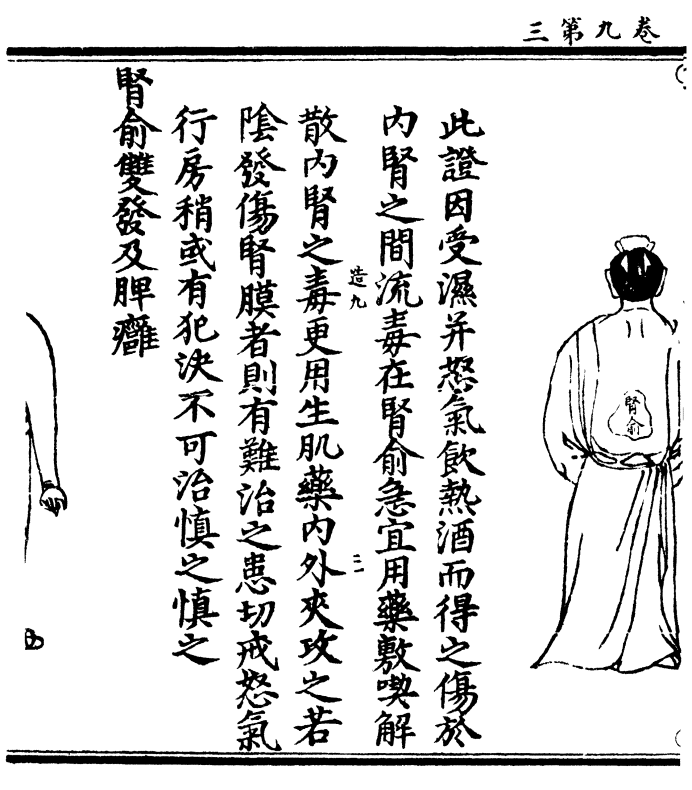 三第九卷
腎俞
此證因受濕并怒氣飲熱酒而得之傷於
內腎之間流毒在腎俞急宜用藥敷喫解
造九
三一
散內腎之毒更用生肌藥內外夾攻之若
陰發傷腎膜者則有難治之患切戒怒氣
行房稍或有犯決不可治慎之慎之
腎俞雙發及脾癰